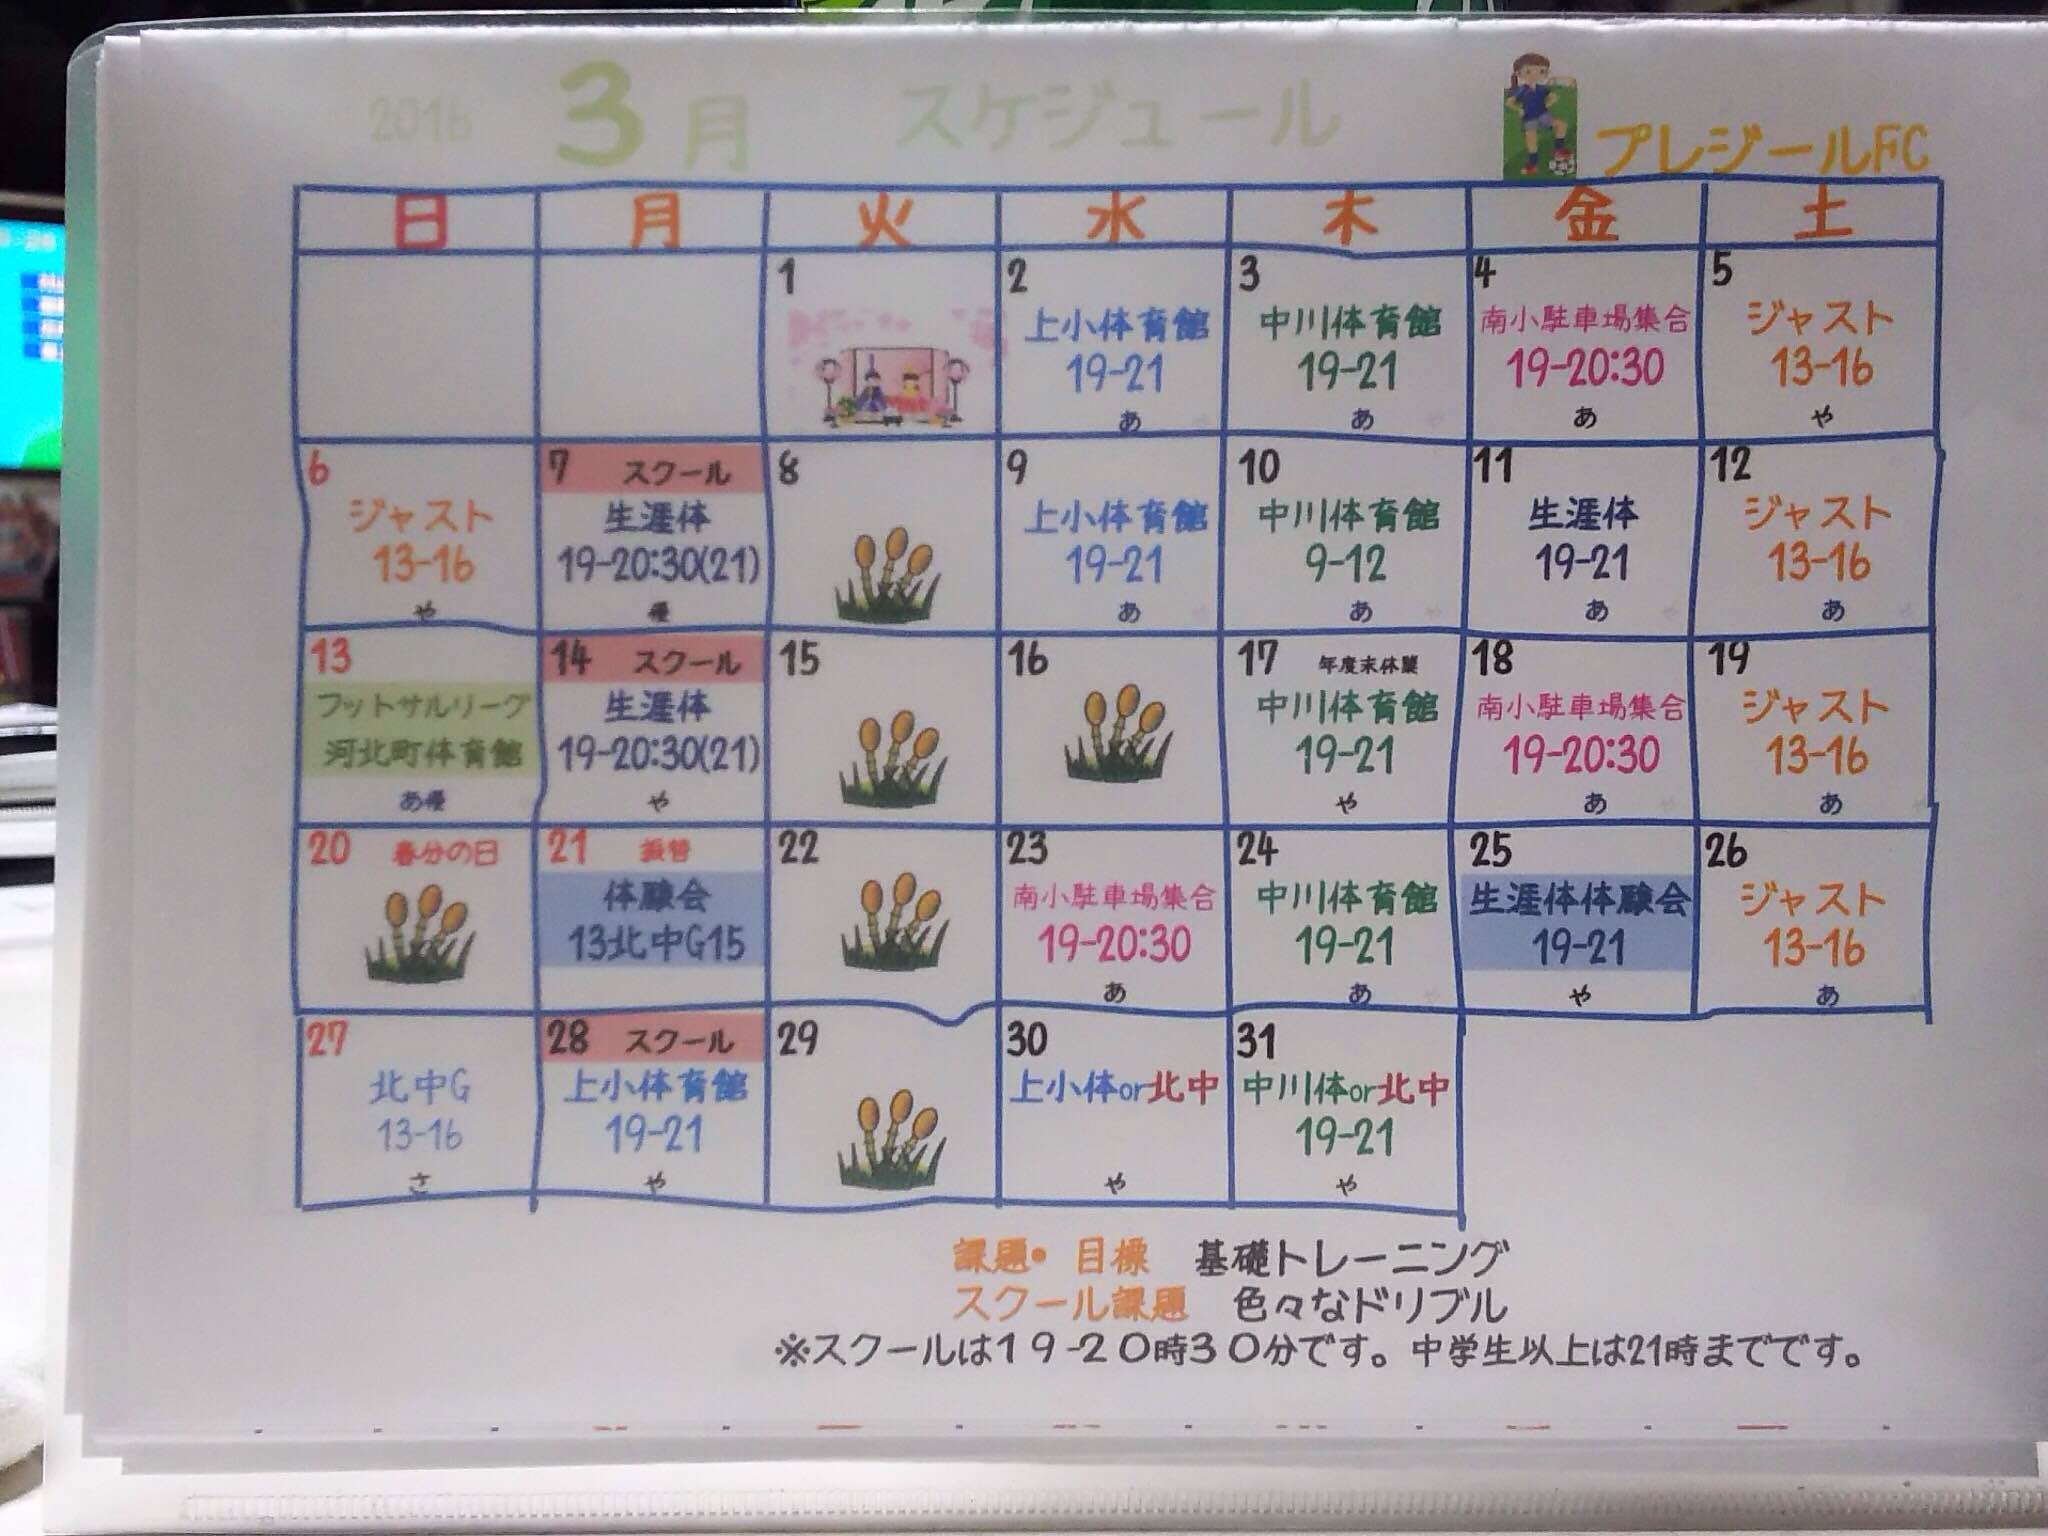 2016 3月 スケジュール
プレジールFC
日 月 火 水 木 金 土
1
2
上小体育館
19-21
あ
3
中川体育館
19-21
あ
4
南小駐車場集合
19-20:30
あ
5
ジャスト
13-16
や
6
ジャスト
13-16
や
7 スクール
生涯体
19-20:30(21)
8
9
上小体育館
19-21
あ
10
中川体育館
9-12
あ
11
生涯体
19-21
あ
12
ジャスト
13-16
あ
13
フットサルリーグ
河北町体育館
あ
14 スクール
生涯体
19-20:30(21)
や
15
16
17 年度末休業
中川体育館
19-21
や
18
南小駐車場集合
19-20:30
あ
19
ジャスト
13-16
あ
20 春分の日
21 振替
体験会
13北中G15
22
23
南小駐車場集合
19-20:30
あ
24
中川体育館
19-21
あ
25
生涯体体験会
19-21
や
26
ジャスト
13-16
あ
27
北中G
13-16
さ
28 スクール
上小体育館
19-21
や
29
30
上小体or北中
や
31
中川体or北中
19-21
や
課題・目標 基礎トレーニング
スクール課題 色々なドリブル
※スクールは１９-２０時３０分です。中学生以上は21時までです。